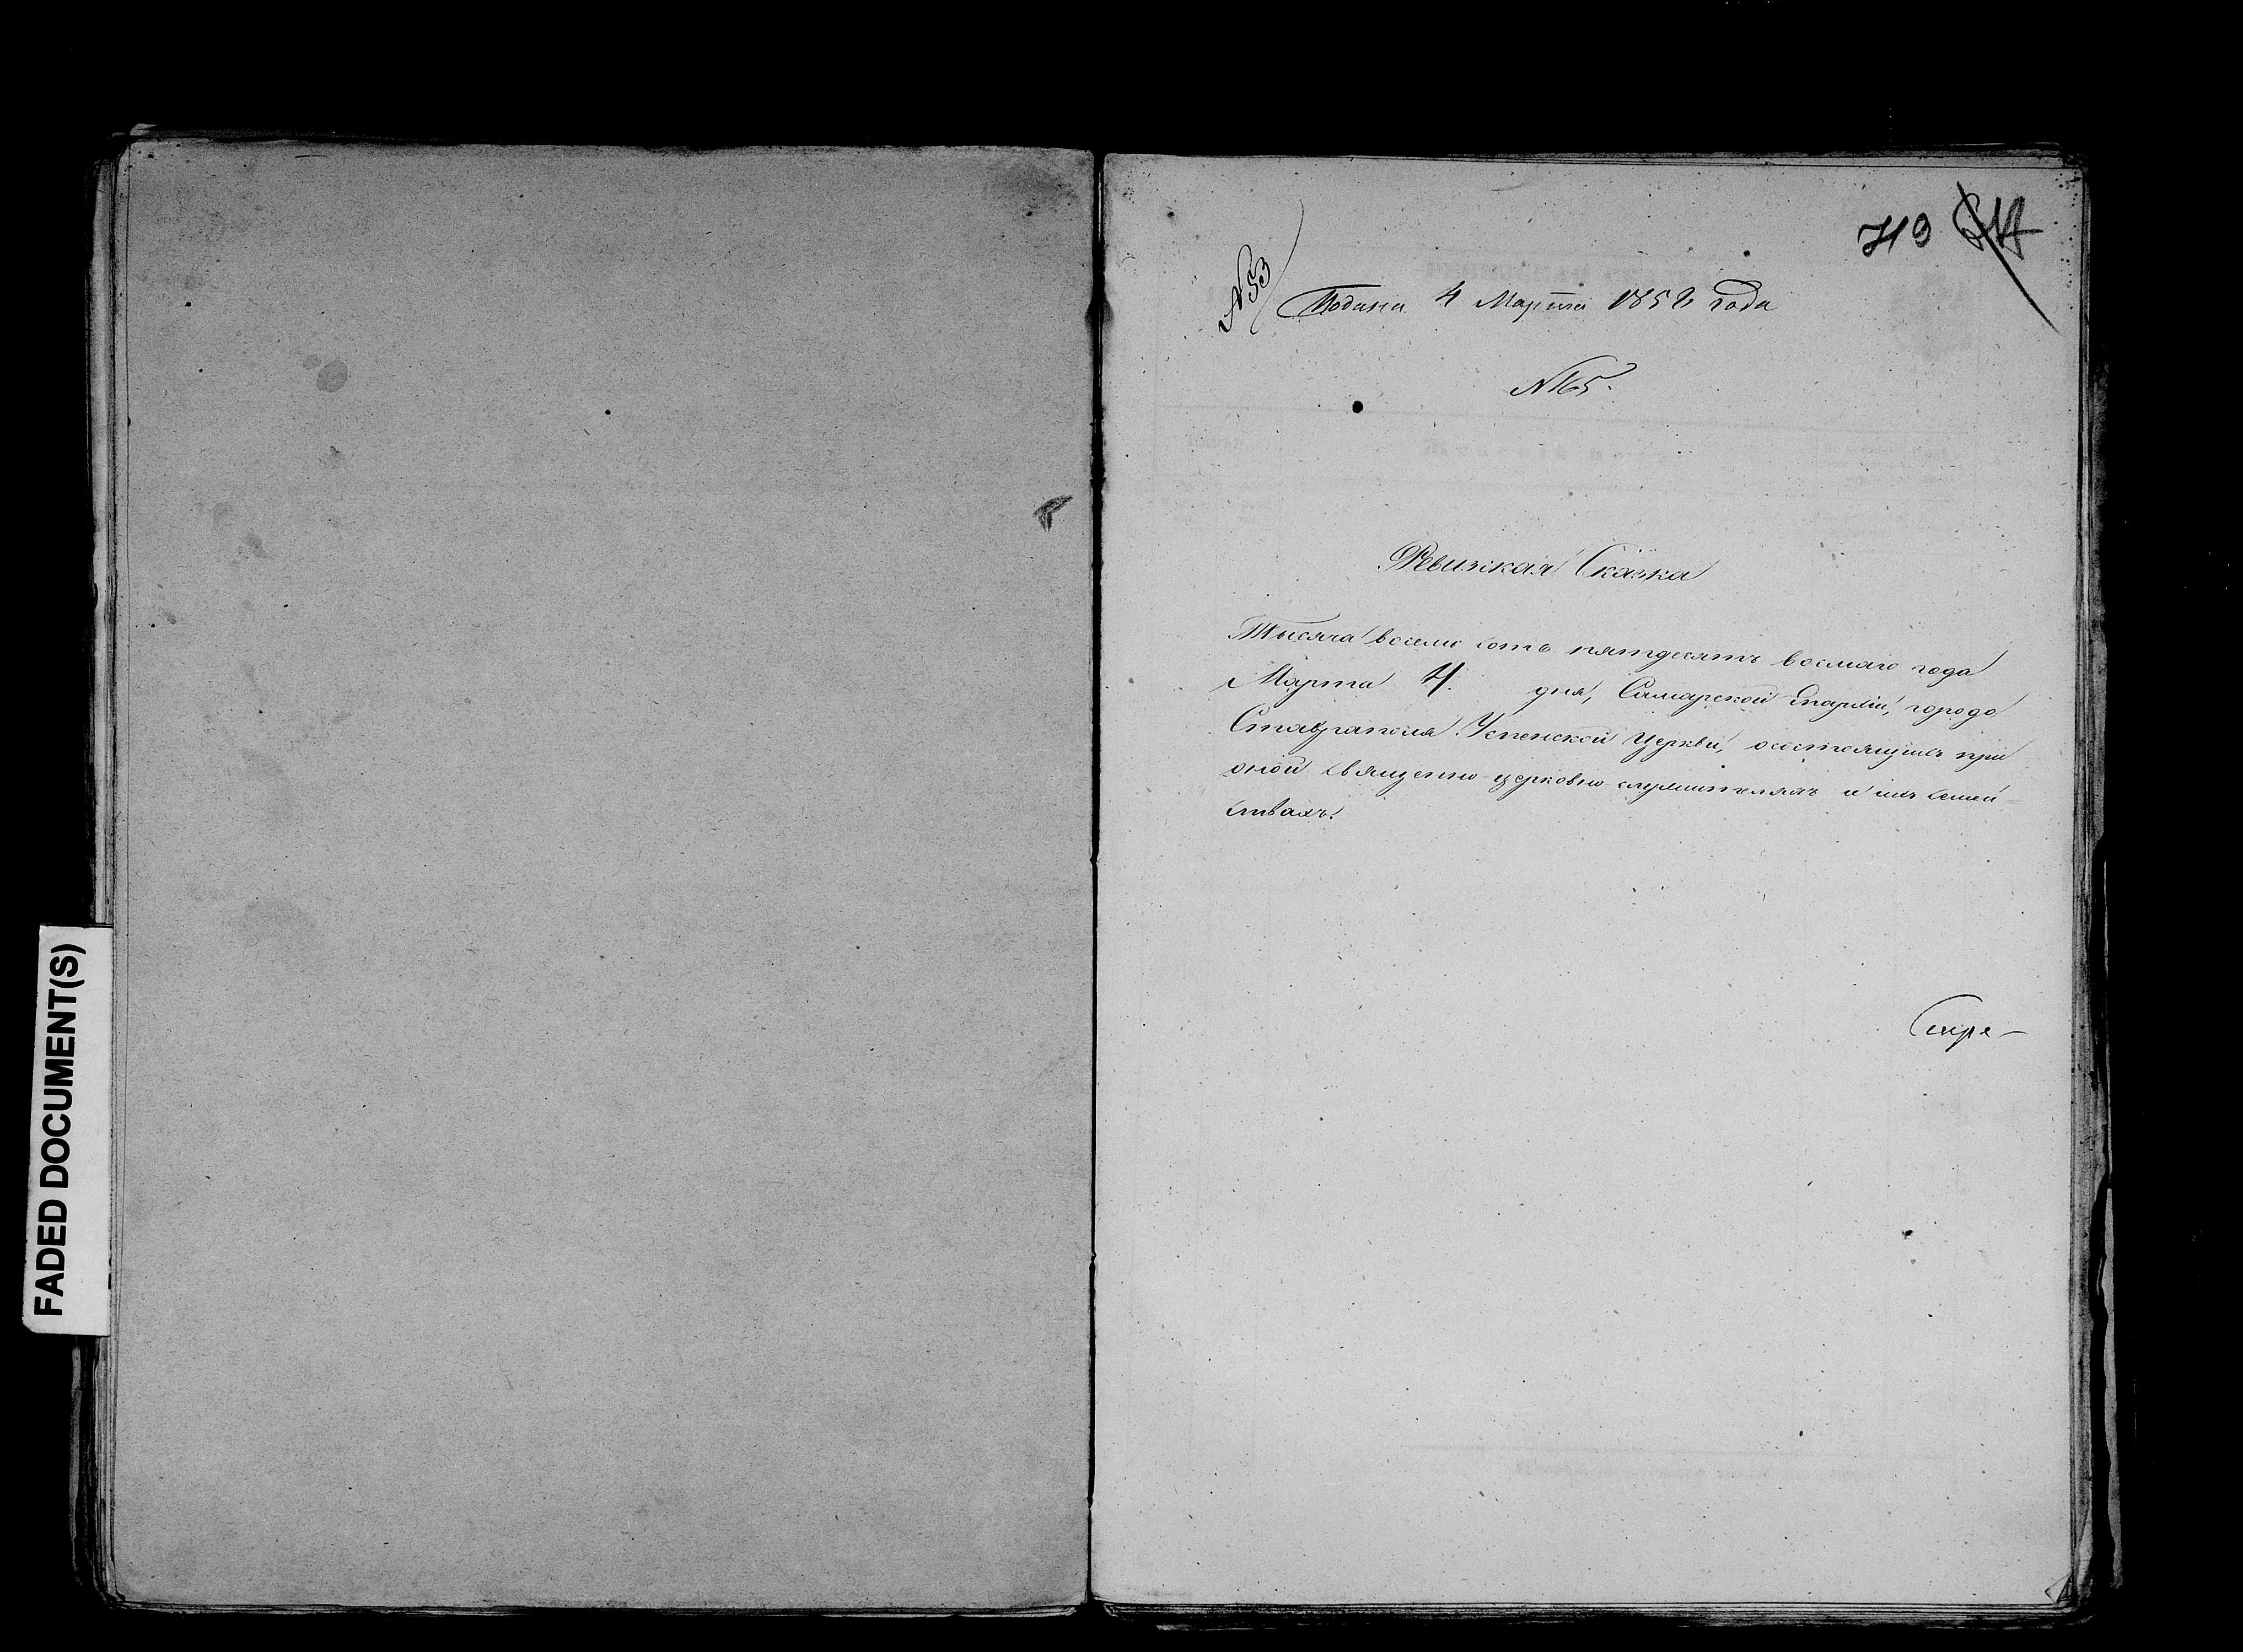 FADED DOCUMENT(S)
№53
Подана 4 Марта 1858 года
№165.
Ревизская Сказка
Тысяча восемь сотъ пятдесятъ восмаго года
Марта 4. дня, Самарской Епархіи, города
Ставраполя Успенской Церкви, осостоящихъ при
оной священно-церковно-служителяхъ и ихъ семей-
ствахъ.